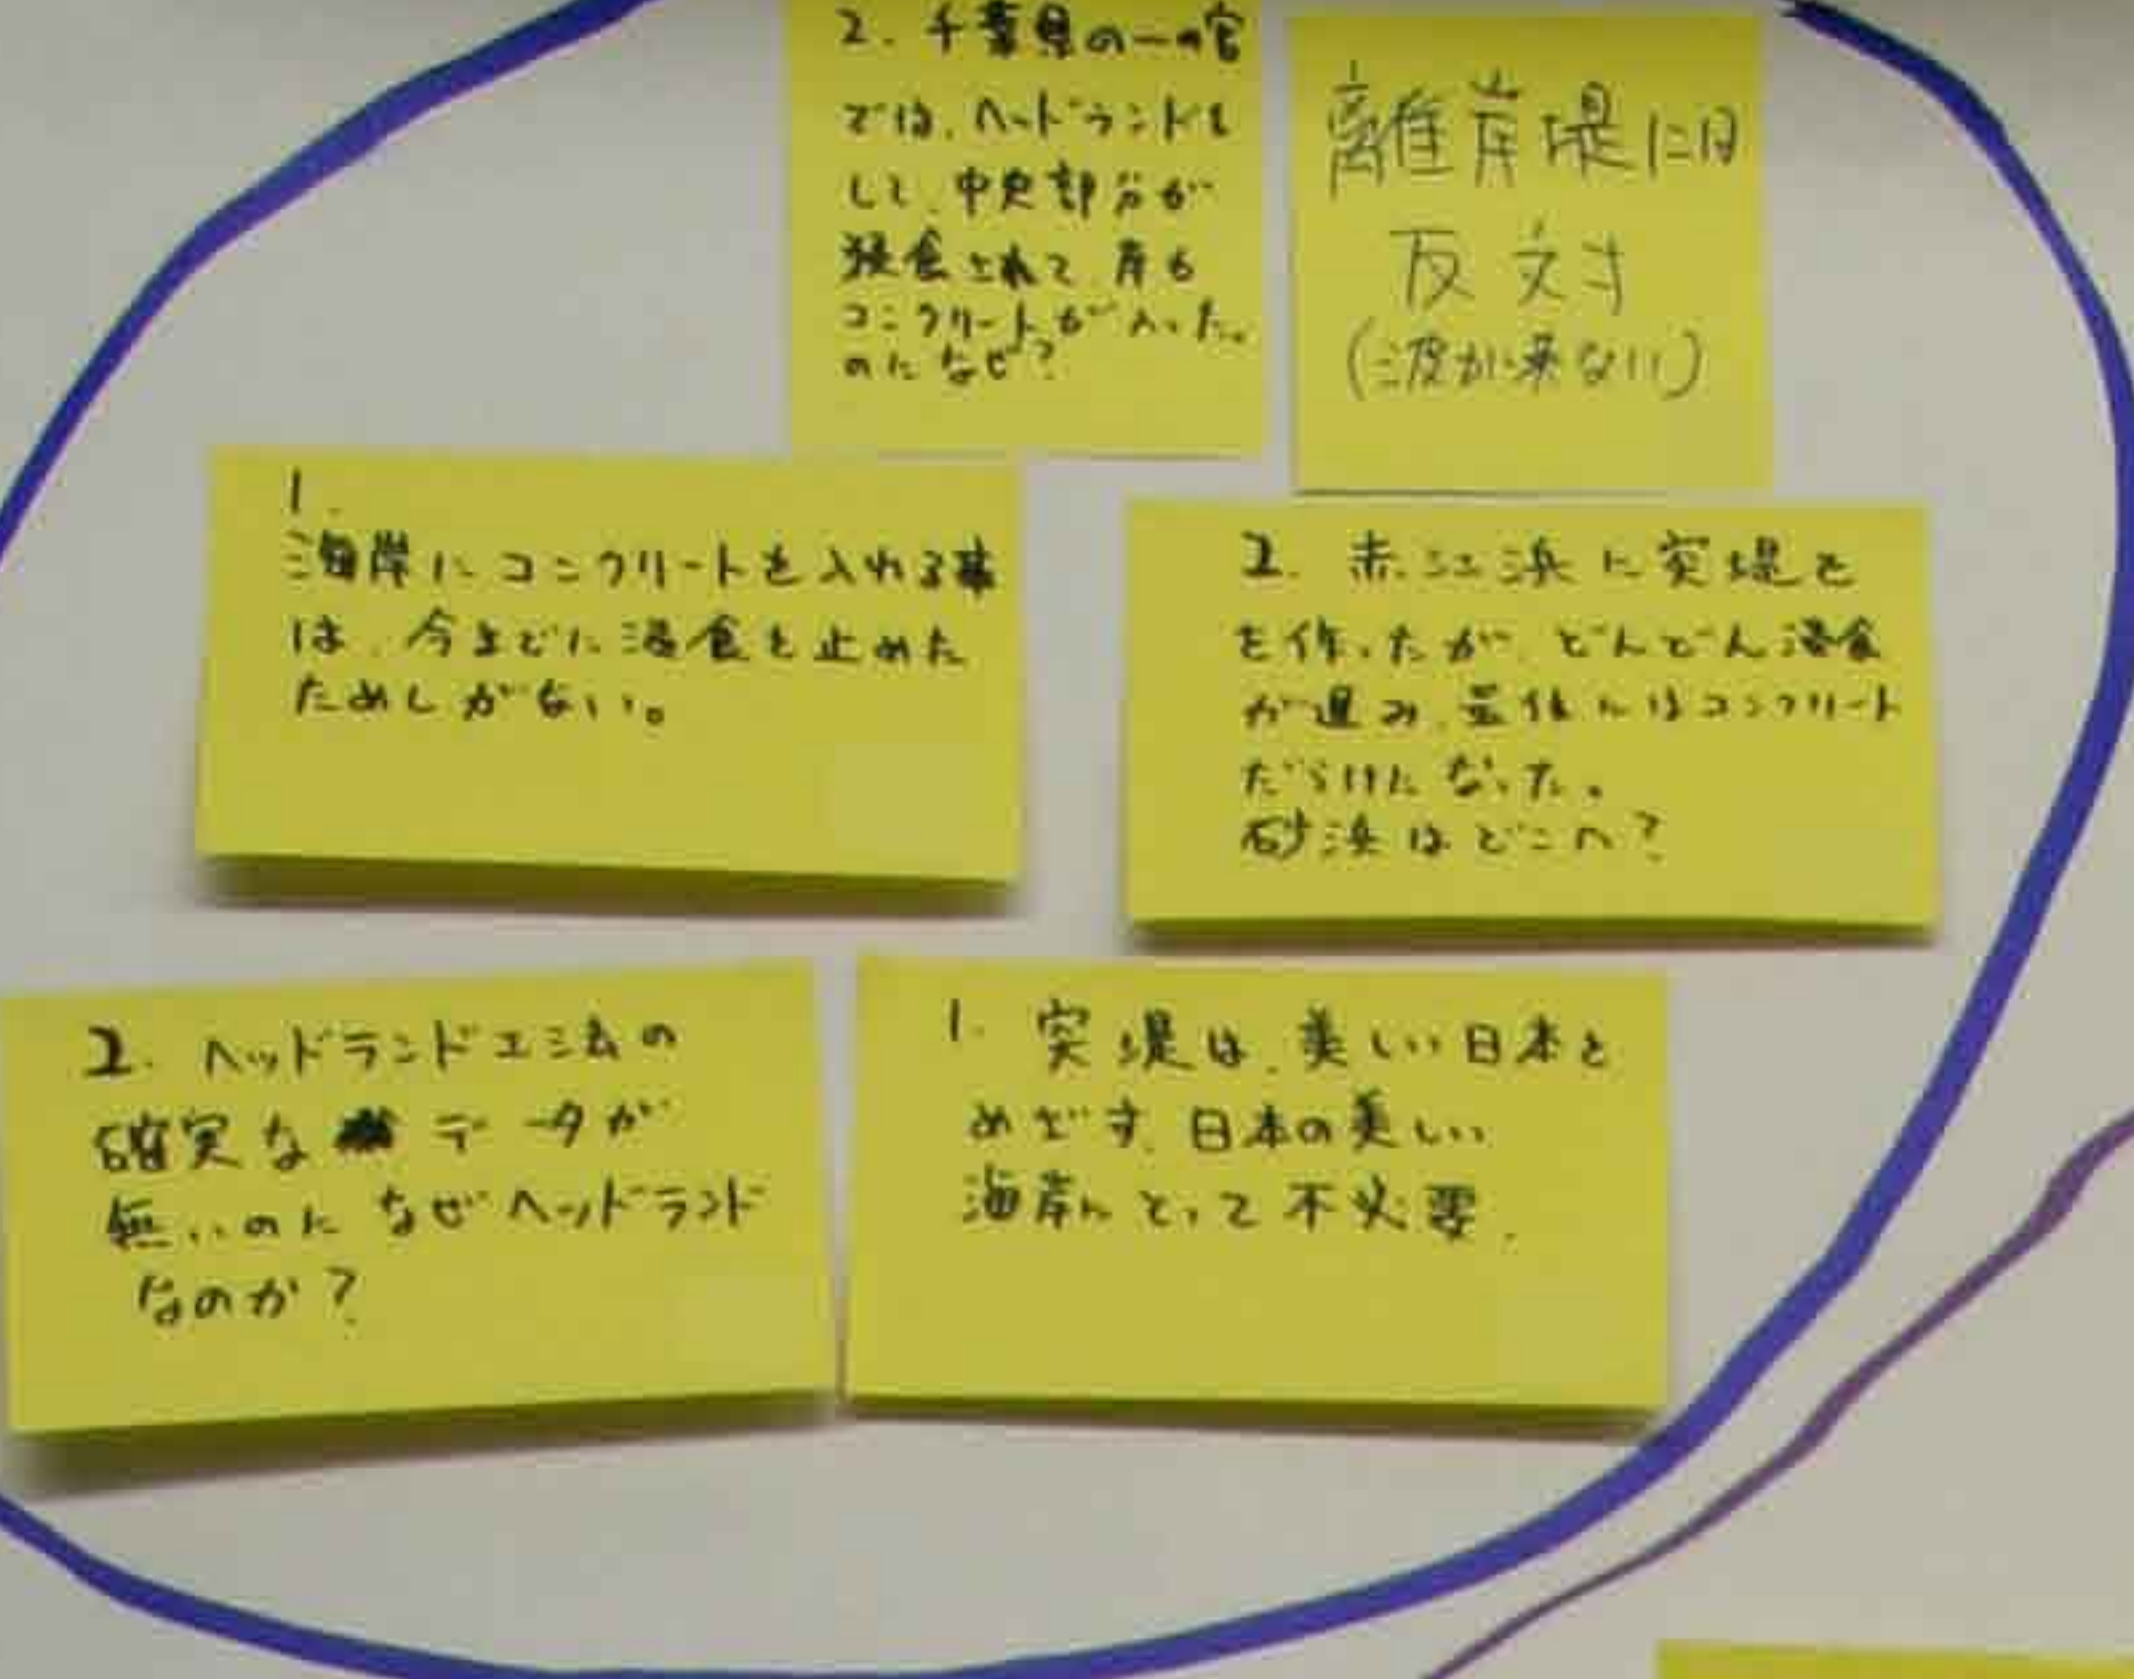 2. 千葉県の一の宮
では、ヘッドランドを
して、中央部分が
浸食されて、岸も
コンクリートが入った。
のになぜ?
離岸堤には
反対
(波が来ない)
1.
海岸にコンクリートを入れる事
は、今までに浸食を止めた
ためしがない。
2. 赤江浜に突堤を
を作ったが、どんどん浸食
が進み、最後にはコンクリート
だらけになった。
砂浜はどこへ?
2. ヘッドランド工法の
確実な データが
無いのに なぜヘッドランド
なのか?
1. 突堤は、美しい日本を
めざす、日本の美しい
海岸にとって不必要.